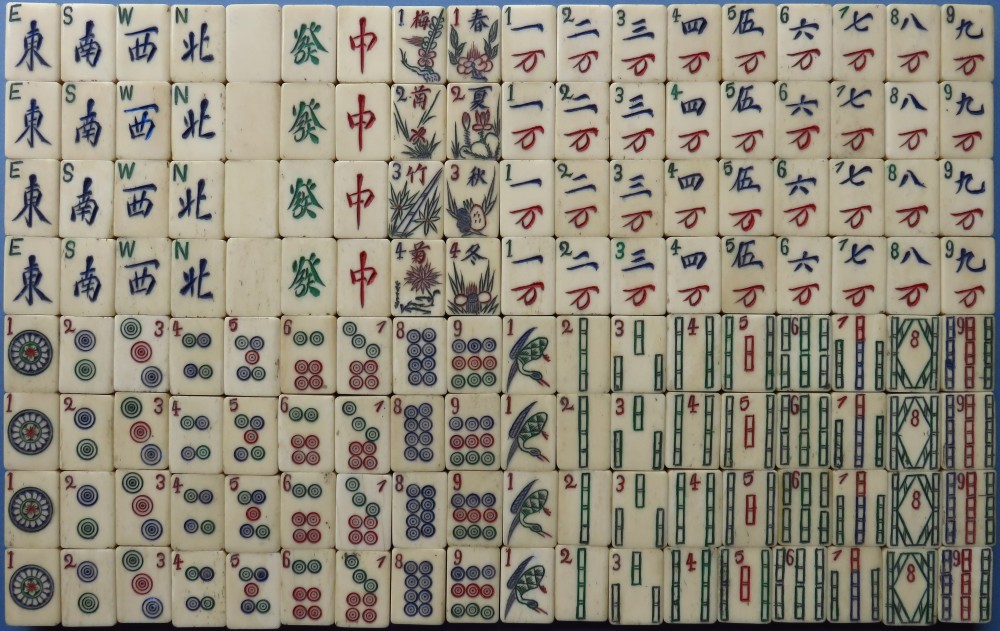 E 東 S 南 W 西 N 北 發 中 1 梅 1 春 1 一万 2 二万 3 三万 4 四万 5 伍万 6 六万 7 七万 8 八万 9 九万
E 東 S 南 W 西 N 北 發 中 2 2 夏 1 一万 2 二万 3 三万 4 四万 5 伍万 6 六万 7 七万 8 八万 9 九万
E 東 S 南 W 西 N 北 發 中 3 竹 3 秋 1 一万 2 二万 3 三万 4 四万 5 伍万 6 六万 7 七万 8 八万 9 九万
E 東 S 南 W 西 N 北 發 中 4 4 冬 1 一万 2 二万 3 三万 4 四万 5 伍万 6 六万 7 七万 8 八万 9 九万
1 2 3 4 5 6 7 8 9 1 2 3 4 5 6 7 8 9
1 2 3 4 5 6 7 8 9 1 2 3 4 5 6 7 8 9
1 2 3 4 5 6 7 8 9 1 2 3 4 5 6 7 8 9
1 2 3 4 5 6 7 8 9 1 2 3 4 5 6 7 8 9